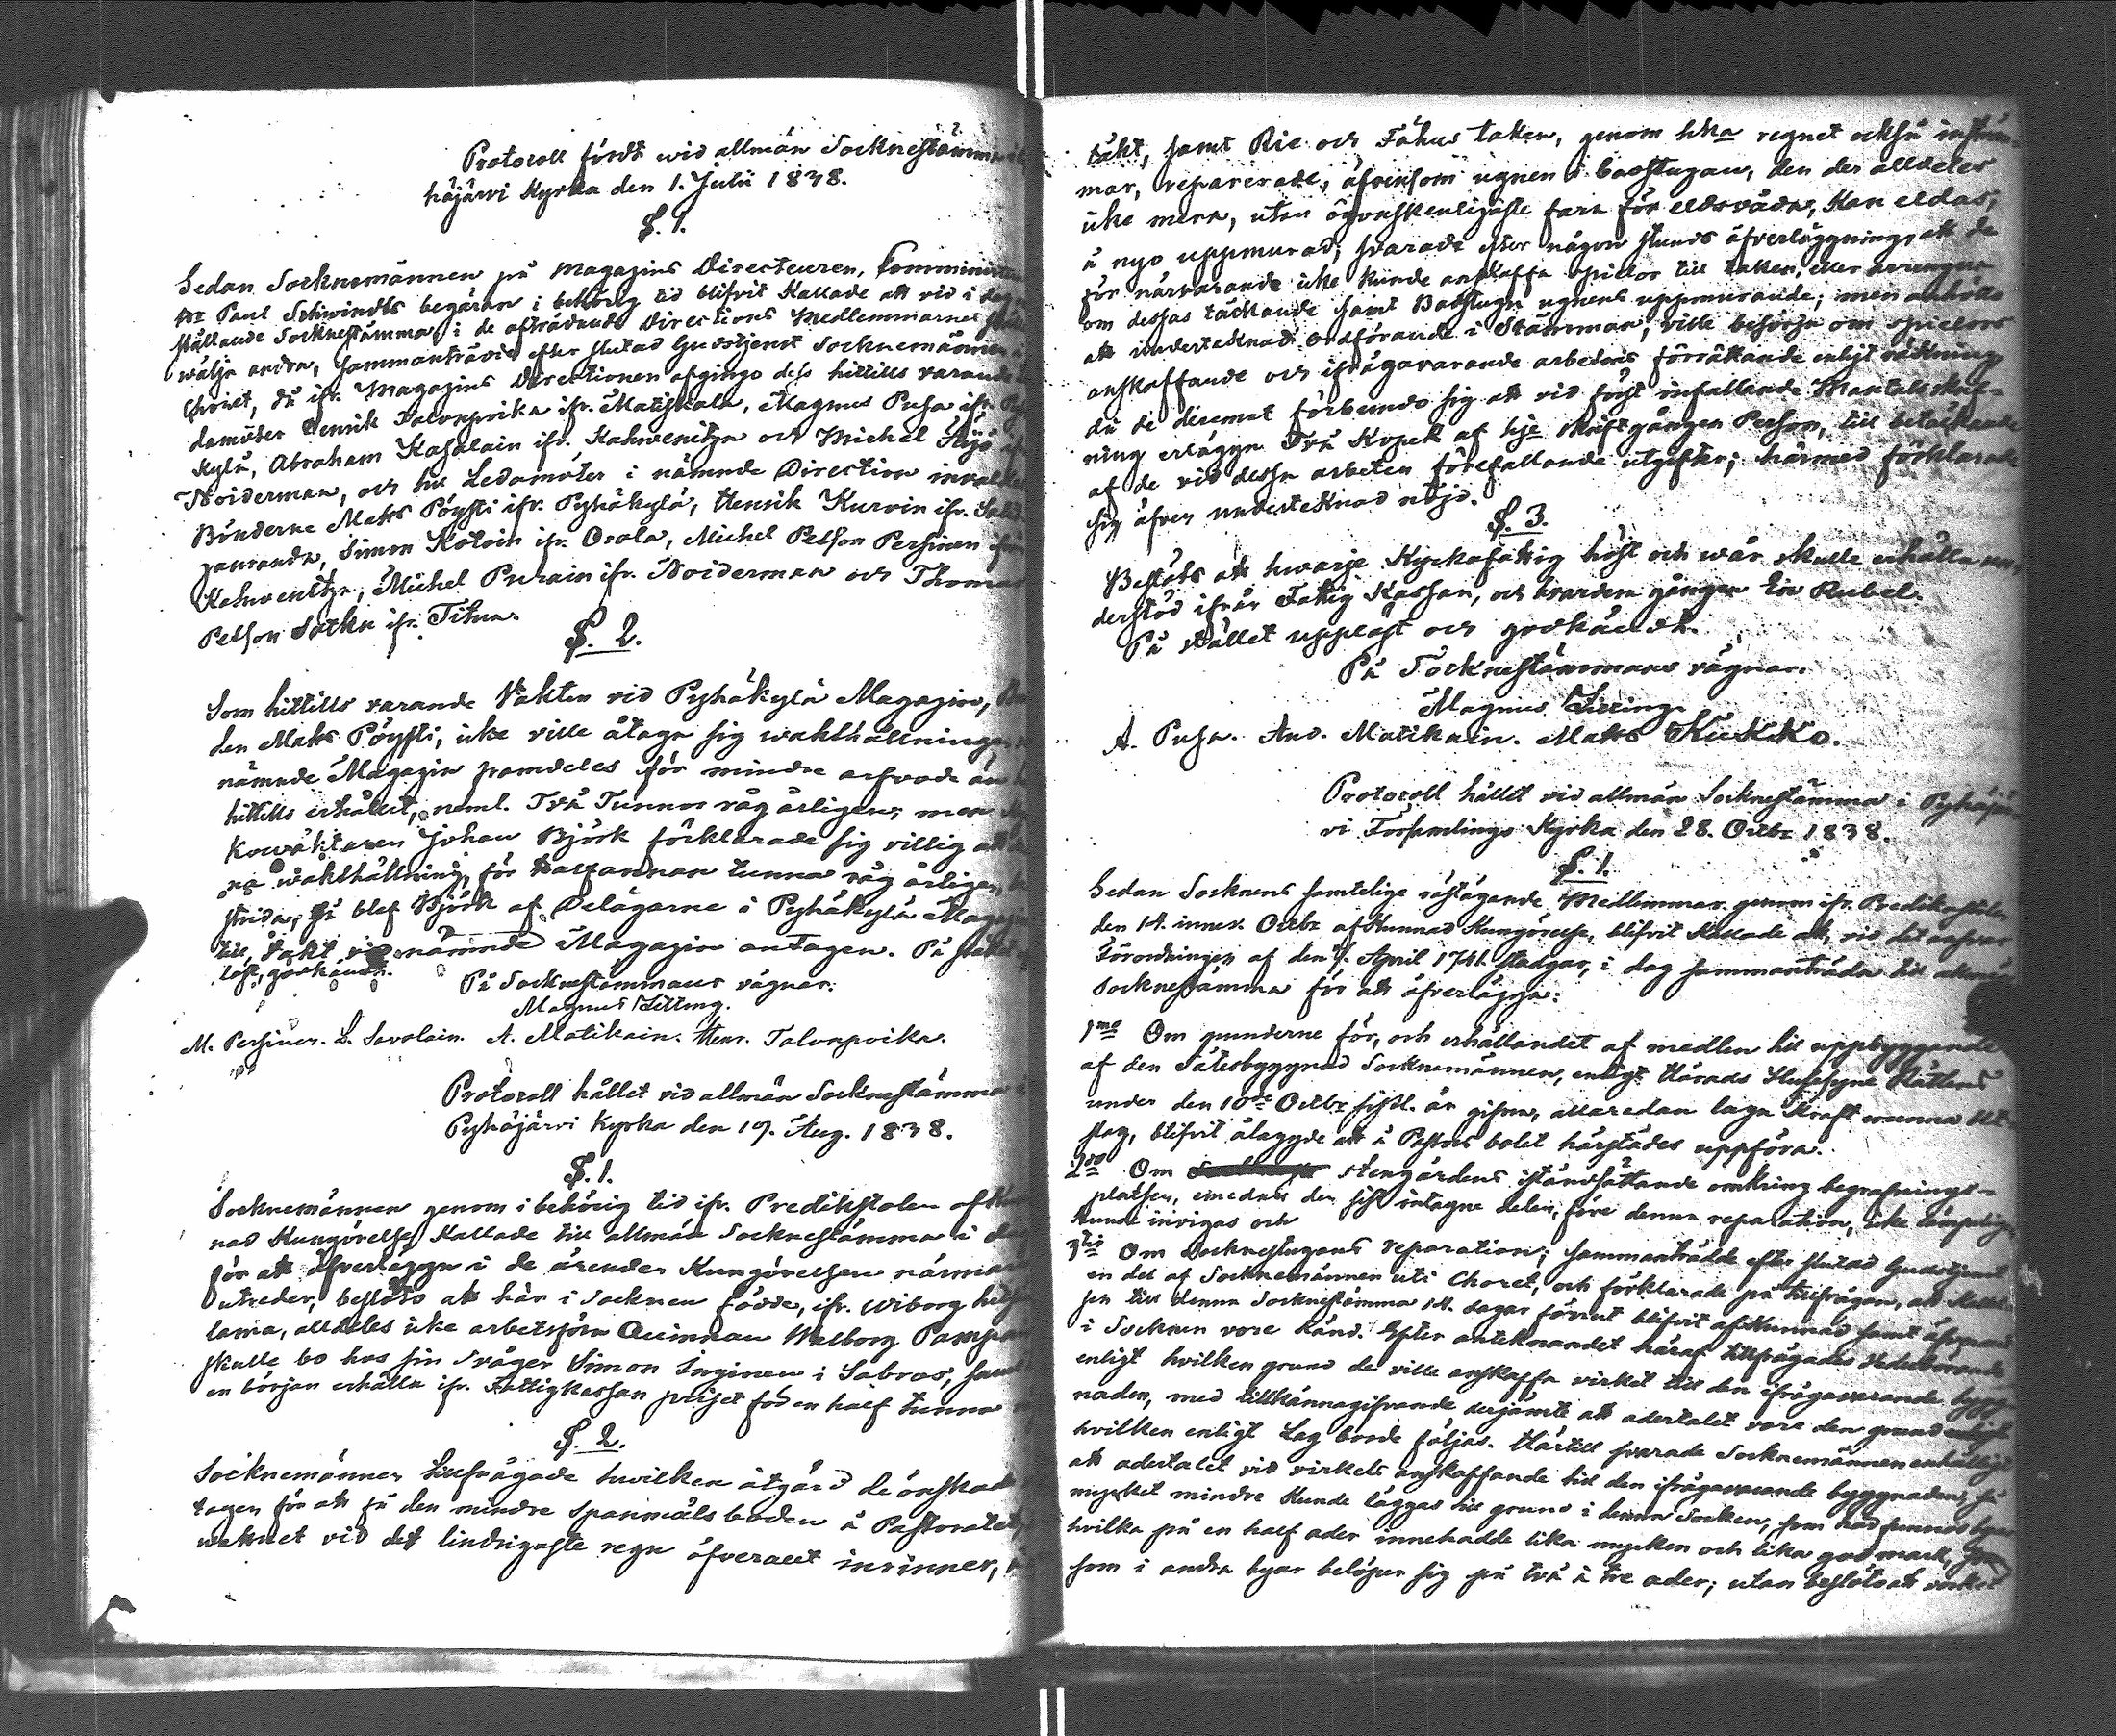 Protocoll fördt wid allmän Socknestämma i
häjärvi Kyrka den 1. Julii 1838.
§. 1.
Sedan Socknemännen på Magazins Directeuren, Comminister
Paul Schwindts begäran i behörig tid blifvit Kallade att vid i dag
ställande Socknestämma, i de afträdande Directions Medlemmarnes ställe
wälja andra, sammanträdde efter slutad Gudstjenst Socknemännen i
Choret, då ifr. Magazins Directionen afgingo dess hittills varande
damöter Henrik Talvanpoika ifr. Matiskala, Magnus Pusa ifr. Py
kylä, Abraham Kasolain ifr. Kahvenitza och Michel Häjö ifr.
Noiderman, och till Ledamöter i nämnde Direction invaldes
Bönderne Matts Pöysti ifr. Pyhäkylä, Henrik Kurvin ifr. Sald
zanranda, Simon Kotoin ifr. Orola, Michel Petson Persinen ifrån
Kahvenitza, Michel Purain ifr. Noiderman och Thomas
Petson Sorku ifr. Titua.
§. 2.
Som hittills varande Vakten vid Pyhäkylä Magazin,
den Matts Pöysti, icke ville åtaga sig wakthållningen
nämnde Magazin framdeles för mindre arfvode än
hittills erhållit, neml. Två Tunnor råg årligen; men
Kowaktaren Johan Björk förklarade sig villig att
na wakthållning, för halfannan tunna råg årligen,
strida, så blef Björk af Delägarne i Pyhäkylä Magazin
till Vakt vid nämnde Magazin antagen. På stället
läst, godkändt.
På Socknestämmans vägnar:
Magnus Zitting.
M. Persinen. L. Savolain. A. Matikain. Henr. Talvanpoika.
Protocoll hållet vid allmän Socknestämma i
Pyhäjärvi Kyrka den 19. Aug. 1838.
§. 1.
Socknemännen genom i behörig tid ifr. Predikstolen afkun
nad Kungörelse, Kallade till allmän Socknestämma i dag
för att öfverlägga i de ärender Kungörelsen närmare
utreder, beslöts att här i Socknen födde, ifr. Wiborg
lama, alldeles icke arbetsföra Quinnan Walborg Pamp
skulle bo hos sin Svåger Simon Inginen i Sabros, samt
en början erhålla ifr. Fattigkassan priset för en half tunna
§. 2.
Socknemännen tillfrågade hwilken åtgärd de önskade
tagen för att få den mindre Spanmåls boden å Pastoratet,
wattnet vid det lindrigaste regn öfverallt inrinner,
täkt, samt Rie och Fähus taken, genom hka regnet också inströ
mar, reparerade; äfvensom ugnen i badstugan, den der alldeles
icke mera, utan ögonskenligaste fara för eldsvåda, Kan eldas,
å nyo uppmurad; svarade efter någon stunds öfverläggning, att de
för närvarande icke kunde anskaffa spickor till taken, eller arrangera
om dessas täckande samt Badstugu ugnens uppmurande; men anhöllo
att undertecknad ordförande i Stämman, ville besörja om spickors
anskaffande och ifrågavarande arbetens förrättande enligt räkning
då de deremot förbundo sig att vid först infallande Mantalsskrif-
ning erlägga Två Kopek af hje skriftgången Person, till betäckande
af de vid dessa arbeten förefallande utgifter; härmed förklarade
sig äfven undertecknad nöjd.
§. 3.
Beslöts att hwarje Kyrkofattig höst och wår skulle erhålla un
derstöd ifrån Fattig Kassan, och hvardera gången tio Rubel.
På stället uppläst och godkändt.
På Socknestämmans vägnar.
Magnus Zitting.
A. Pusa. And. Matikain. Matts Kukko.
Protocoll hållit vid allmän Socknestämma i Pyhäjär
vi Församlings Kyrka den 28. Octbr 1838.
§. 1.
Sedan Socknens samtelige röstägande Medlemmar genom ifr. Predikostolen
den 14. innev. Octbr afkunnad Kungörelse, blifvit Kallade att, vid det answar
Förordningen af den April 1741. stadgar, i dag sammanträda till allmän
Socknestämma för att öfverlägga:
1mo Om grunderne för, och erhållandet af medlen till uppbyggande
af den Sätesbyggnad Socknemännen, enligt Härads Husesyne Rättens
under den 10de Octbr sistl. år gifna, allaredan laga Kraft wunna Ut-
slag, blifvit ålagde att å Pastors bolet härstädes uppföra.
2do Om stengårdens iståndsättande omkring begrafnings-
platsen, emedan den sist intagne delen, före denna reparation, icke lämpeligen
kunde invigas och
3tio Om Socknestugans reparation; sammanträdde efter slutad Gudstjenst
en del af Socknemännen uti Choret, och förklarade på tillfrågan, att Kallel-
sen till denna Socknestämma 14. dagar förrut blifvit afkunnad samt äfvenså
i Socknen vore känd. Efter antecknandet häraf tillfrågades vederbörande
enligt hvilken grund de ville anskaffa virket till den ifrågavarande bygg
naden, med tillkännagifvande derjämte att adertalet vore den grund enligt
hvilken enligt Lag borde följas. Härtill svarade Socknemännen enhälligt
att adertalet vid virkets anskaffande till den ifrågavarande byggnaden, så
mycket mindre Kunde läggas till grund i denna Socken, som här funnos byar
hvilka på en half ader innehadde lika mycken och lika god mark, som
som i andra byar belöper sig på två à tre ader; utan beslöts att virket